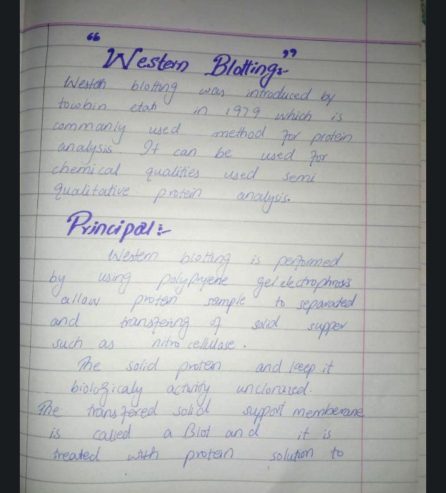 "Western Blotting:-"
Westen blotting was introduced by
towbin etah in 1979 which is
commanly used method for protein
analysis It can be used for
chemical qualities used semi
qualitative protein analysis.
Principal:-
Western blotting is performed
by using polypryene gel electrophnoss
allow protien sample to separated
and transfering of solid supper
such as nitro cellulase.
The solid protien and keep it
biologicaly activity
The transfered solid support memberane
is called a Blot and it is
treated with protein solution to